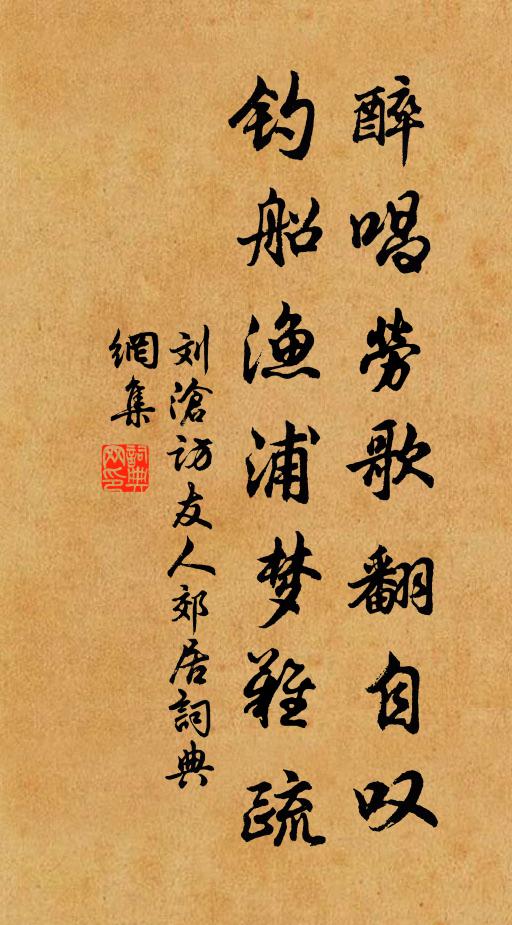 醉唱劳歌翻自叹
钓船渔浦梦难疏
刘滄访友人郊居詞典
網集
詞典網印